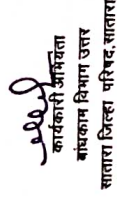 कार्यकारी अभियंता
बांधकाम विभाग उत्तर
सातारा जिल्हा परिषद, सातारा